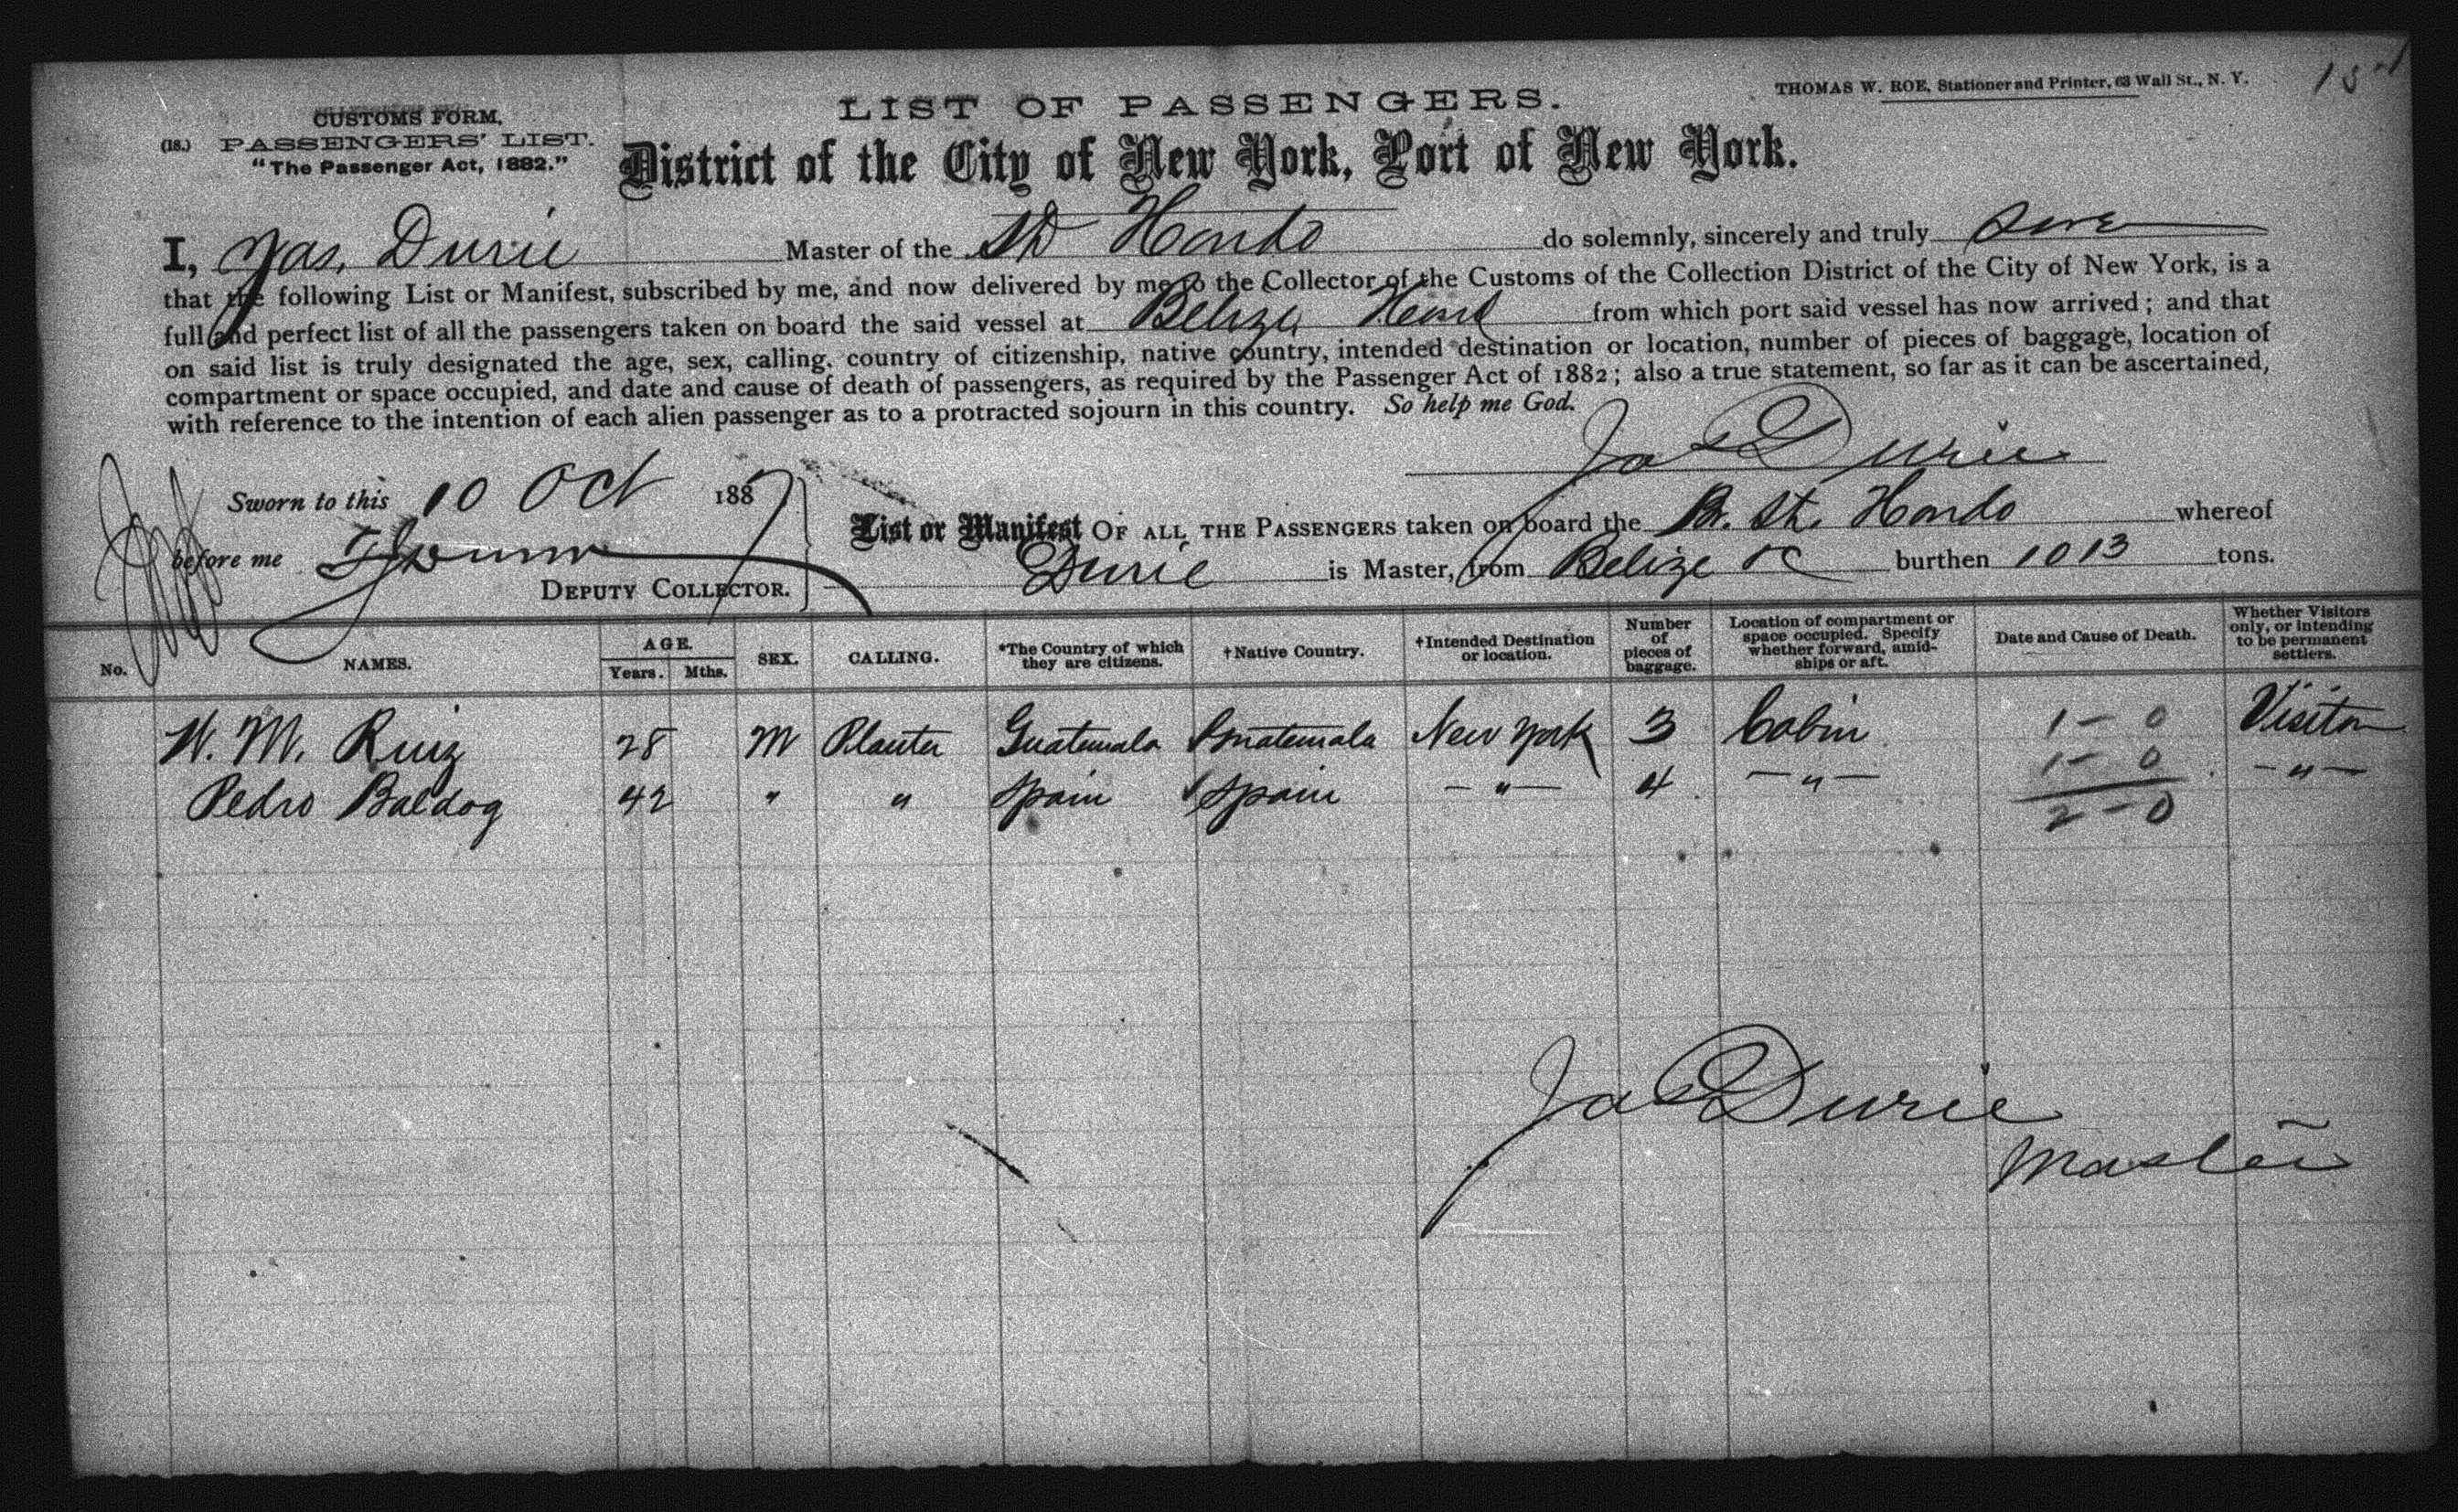 THOMAS W. ROE, Stationer and Printer, 63 Wall St., N. Y.
LIST OF PASSENGERS.
CUSTOMS FORM,
(18.) PASSENGERS' LIST.
"The Passenger Act, 1882."
District of the City of New York, Port of New York.
I, Jas. Durie Master of the Hondo do solemnly, sincerely and truly
that the following List or Manifest, subscribed by me, and now delivered by me to the Collector of the Customs of the Collection District of the City of New York, is a
full and perfect list of all the passengers taken on board the said vessel at Belize from which port said vessel has now arrived; and that
on said list is truly designated the age, sex, calling, country of citizenship, native country, intended destination or location, number of pieces of baggage, location of
compartment or space occupied, and date and cause of death of passengers, as required by the Passenger Act of 1882; also a true statement, so far as it can be ascertained,
with reference to the intention of each alien passenger as to a protracted sojourn in this country. So help me God.
Jas Durie
Sworn to this 10 Oct 1887
before me
DEPUTY COLLECTOR.
List or Manifest OF ALL THE PASSENGERS taken on board the Br. St. Hondo whereof
Durie is Master, from Belize burthen 1013 tons.
No. NAMES. AGE. Years. Mths. SEX. CALLING. *The Country of which they are citizens. †Native Country. †Intended Destination or location. Number of pieces of baggage. Location of compartment or space occupied. Specify whether forward, amidships or aft. Date and Cause of Death. Whether Visitors only, or intending to be permanent settlers.
W. M. Ruiz 28 M Planter Guatemala Guatemala New York 3 Cabin 1 - 0 Visitor
Pedro Baldog 42 " " Spain Spain - " - 4 - " - 1 - 0 - " -
2 - 0
Jas Durie
Master